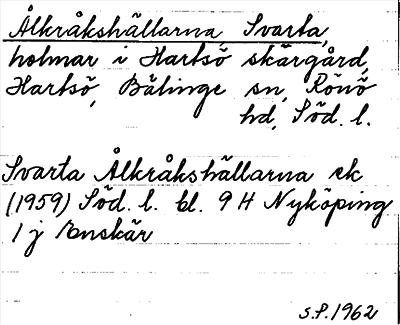 Ålkråkshällarna Svarta,
holmar i Hartsö skärgård,
Hartsö, Bälinge sn, Rönö
hd, Söd. l.
Svarta Ålkråkshällarna ek
(1959) Söd. l. bl. 9 H Nyköping
1 j Enskär
S.P. 1962